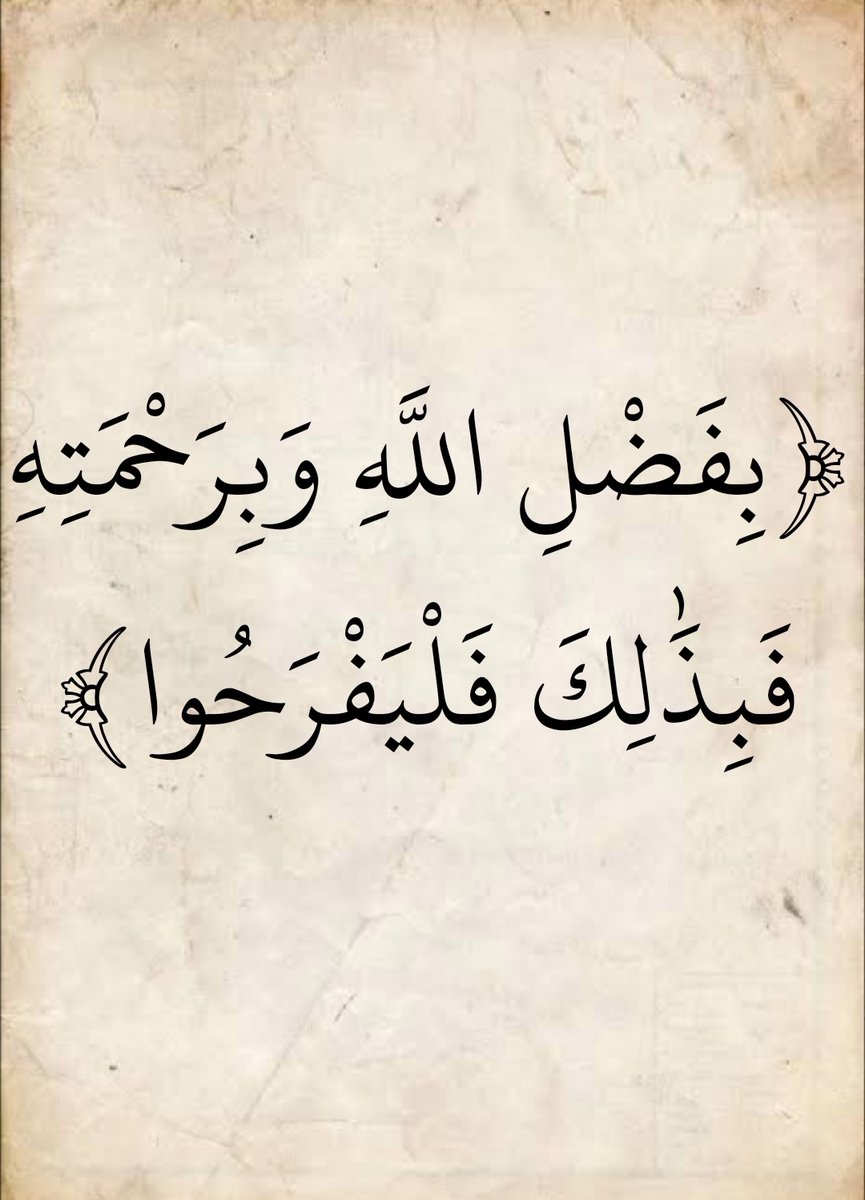 ﴿بِفَضْلِ اللَّهِ وَبِرَحْمَتِهِ
فَبِذَٰلِكَ فَلْيَفْرَحُوا﴾